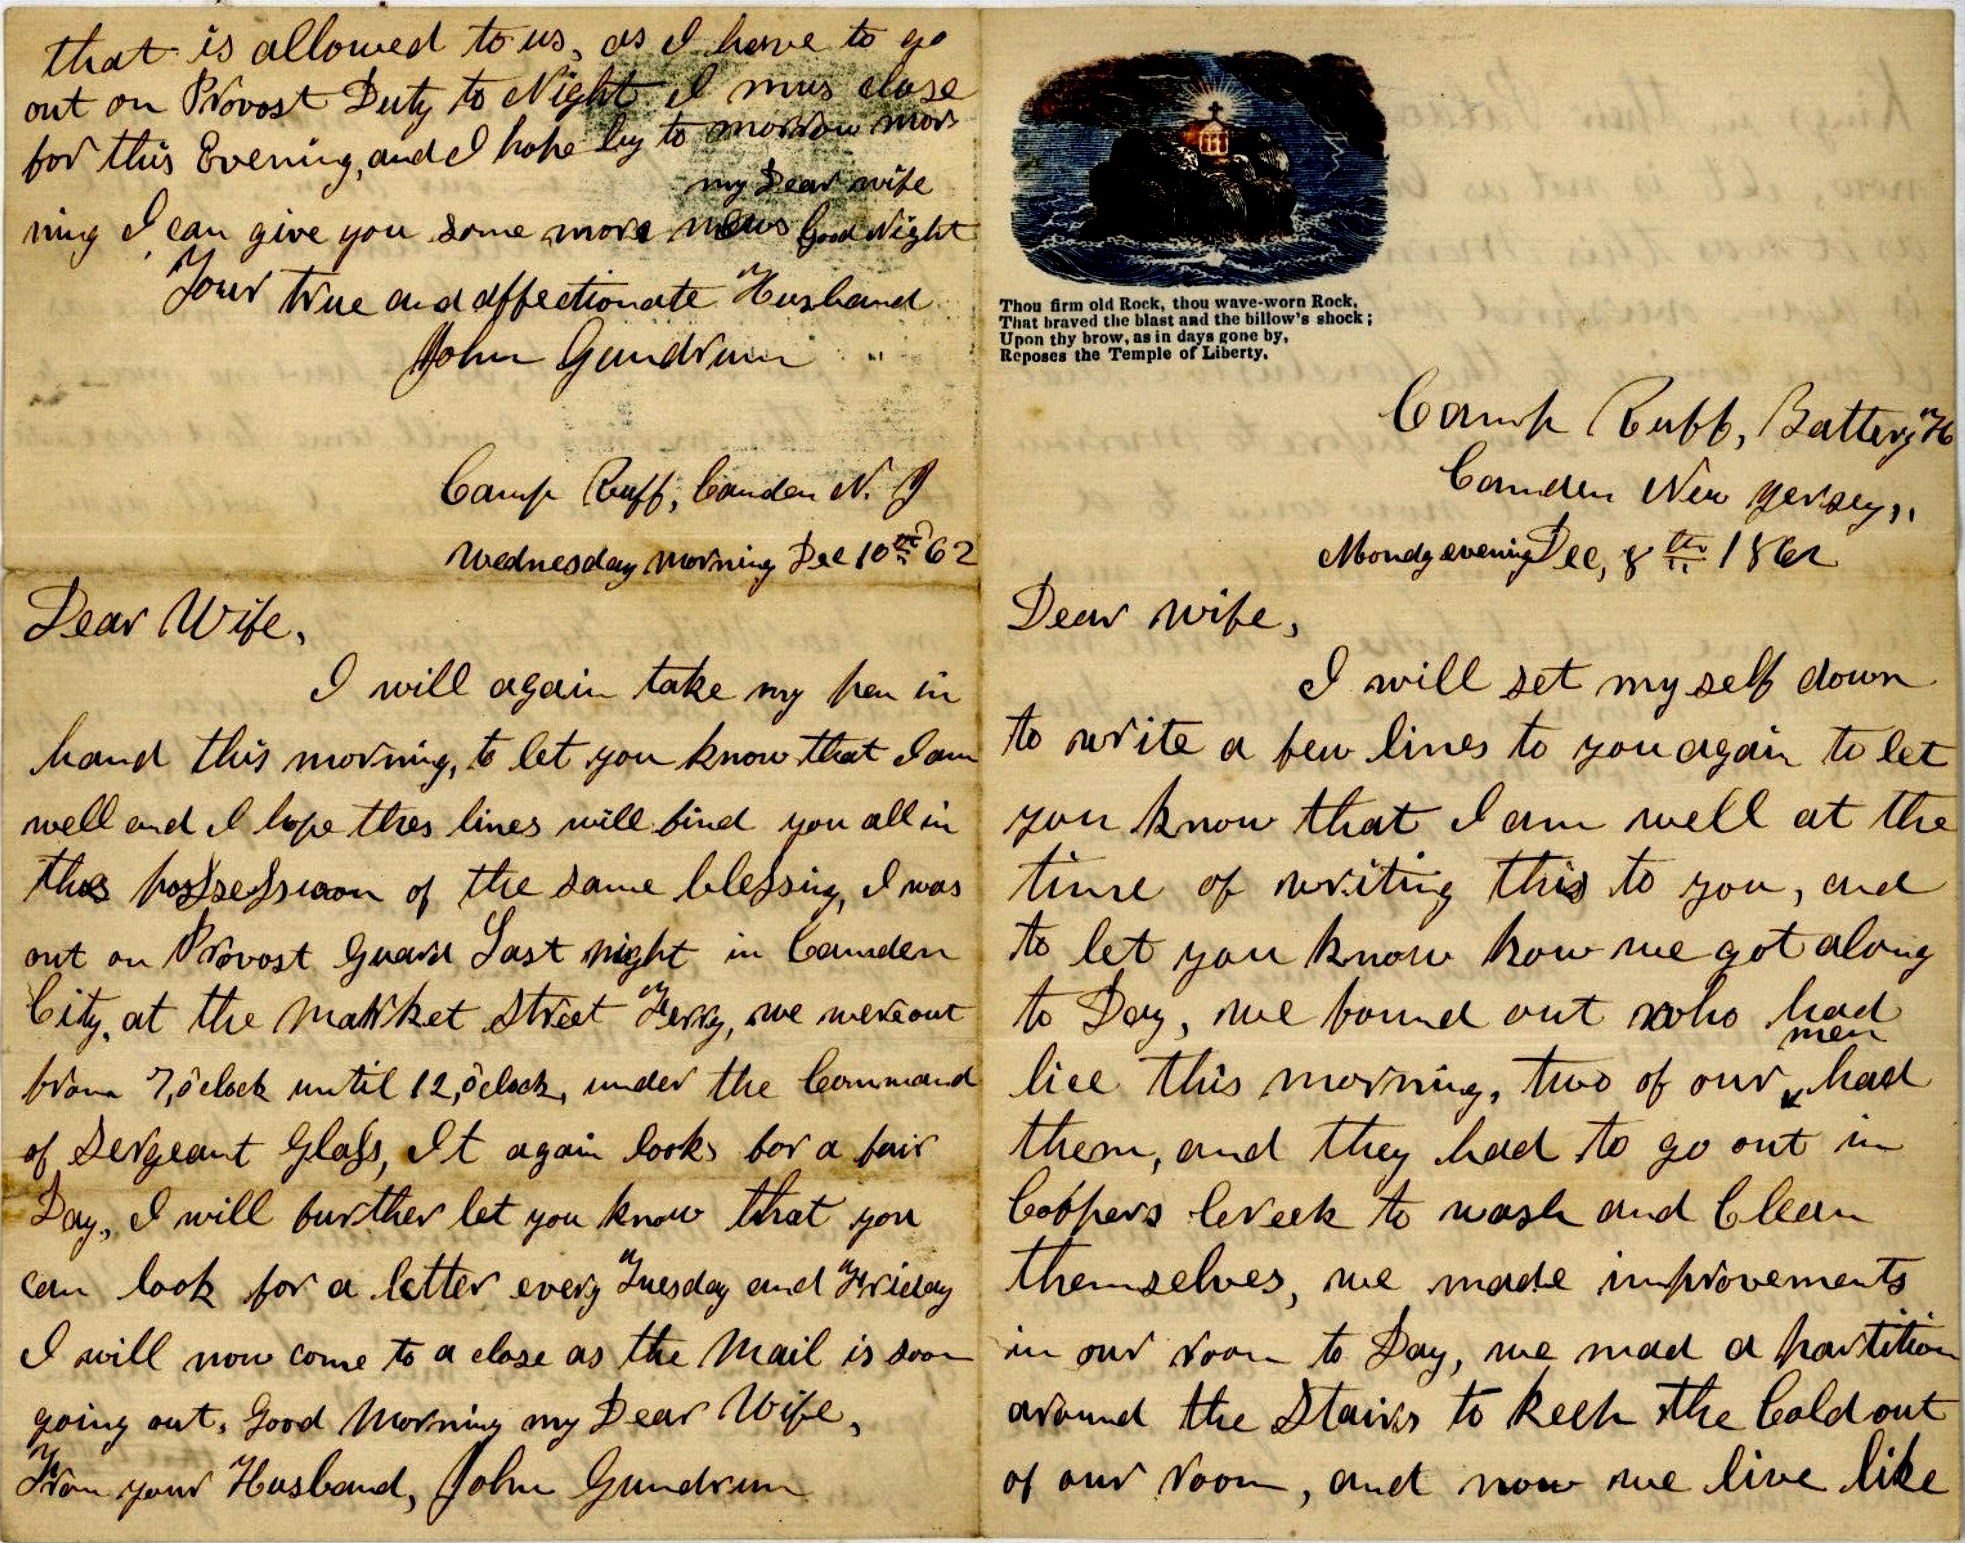 Thou firm old Rock, thou wave-worn Rock,
That braved the blast and the billow's shock;
Upon thy brow, as in days gone by,
Reposes the Temple of Liberty.
Camp Ruff, Battery H
Camden New Yersey,,
Mondy evening Dec, 8th 1862
Dear Wife,
I will set my self down
to write a few lines to you again to let
you know that I am well at the
time of writing this to you, and
to let you know how we got along
to Day, we found out who had
lice this morning, two of our men had
them, and they had to go out in
Coppers Creek to wash and Clean
themselves, we made improvements
in our room to Day, we mad a partition
around the Stairs to keep the Cold out
of our room, and now we live like
that is allowed to us, as I have to go
out on Provost Duty to Night I mus close
for this Evening, and I hope by to morrow mor
ning I can give you some more news my Dear wife Good Night
Your true and affectionate Husband
John Gundrum
Camp Ruff, Camden N. J
Wednesday morning Dec 10th 62
Dear Wife,
I will again take my pen in
hand this morning, to let you know that I am
well and I hope thes lines will find you all in
the possession of the same blessing, I was
out on Provost Guard Last night in Camden
City, at the Market Street Ferry, we were out
from 7,oclock until 12,oclock, under the Command
of Sergeant Glass, It again looks for a fair
Day, I will further let you know that you
can look for a letter every Tuesday and Friday
I will now come to a close as the Mail is soon
going out. Good Morning my Dear Wife,
From your Husband, John Gundrum